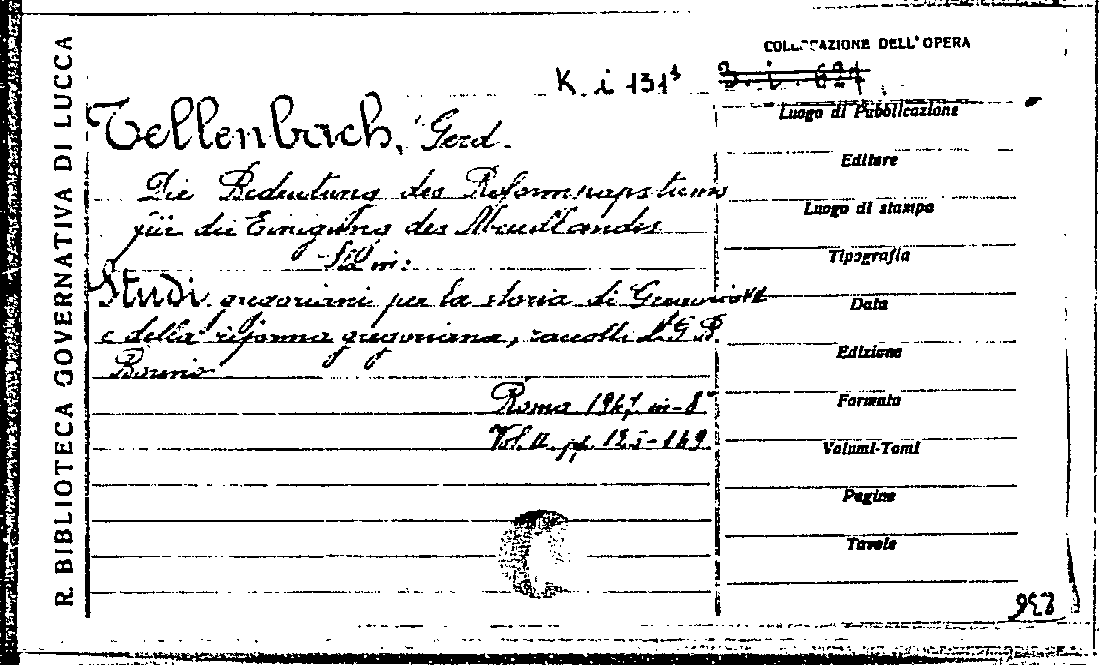 R. BIBLIOTECA GOVERNATIVA DI LUCCA
COLLOCAZIONE DELL'OPERA
K. i 131
Tellenbach, Gerd.
Die Bedeutung des Reformpapstums
für die Einigung des Abendlandes
Sta in:
Studi gregoriani per la storia di
e della riforma gregoriana, raccolti da G. B.
Borino
Roma 1947 in-8°
Vol. II. pp. 125-149.
Luogo di Pubblicazione
Editore
Luogo di stampa
Tipografia
Data
Edizione
Formato
Volumi-Tomi
Pagine
Tavole